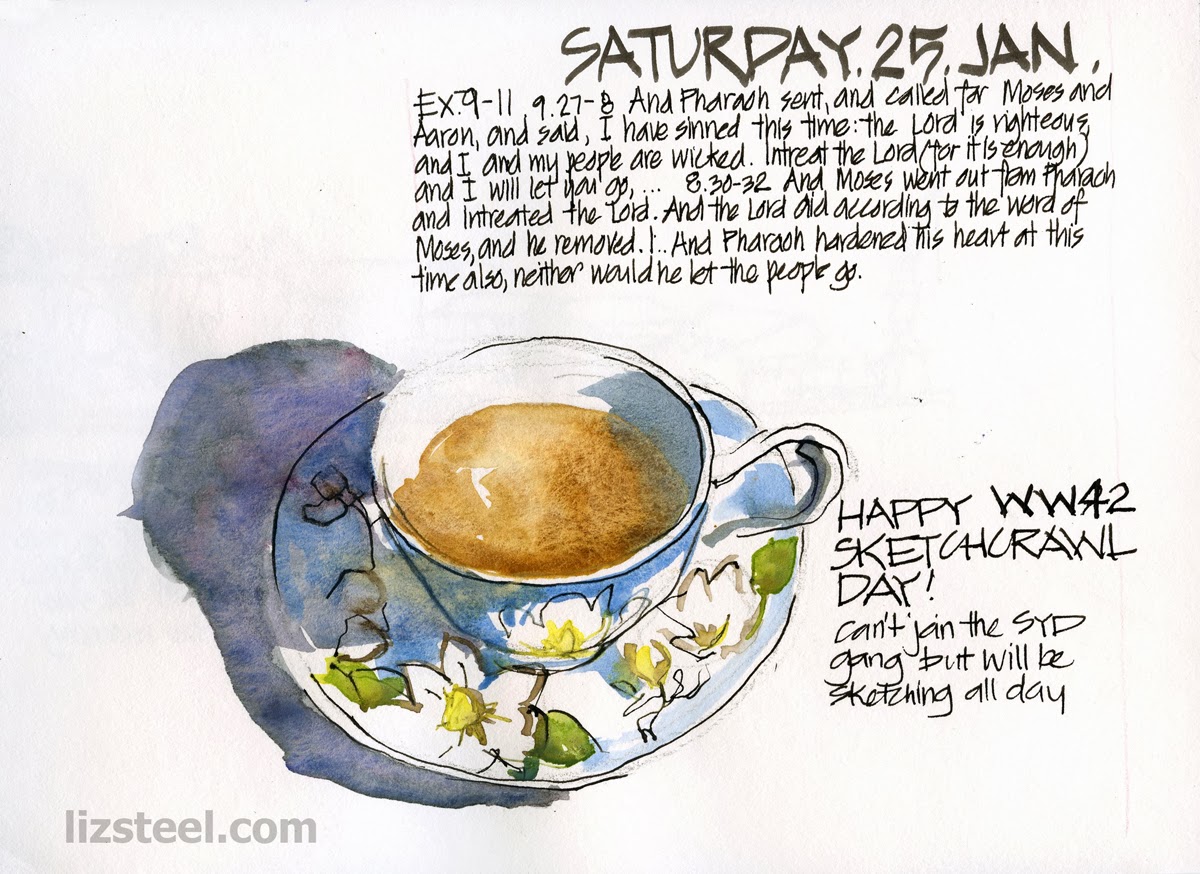 SATURDAY. 25. JAN.
EX.9-11 9.27-8 And Pharaoh sent, and called for Moses and
Aaron, and said, I have sinned this time: the Lord is righteous,
and I and my people are wicked. Intreat the Lord (for it is enough)
and I will let you go, ... 8.30-32 And Moses went out from Pharaoh
and intreated the Lord. And the Lord did according to the word of
Moses, and he removed. !.. And Pharaoh hardened his heart at this
time also, neither would he let the people go.
HAPPY WW42
SKETCHCRAWL
DAY!
can't join the SYD
gang but will be
sketching all day
lizsteel.com